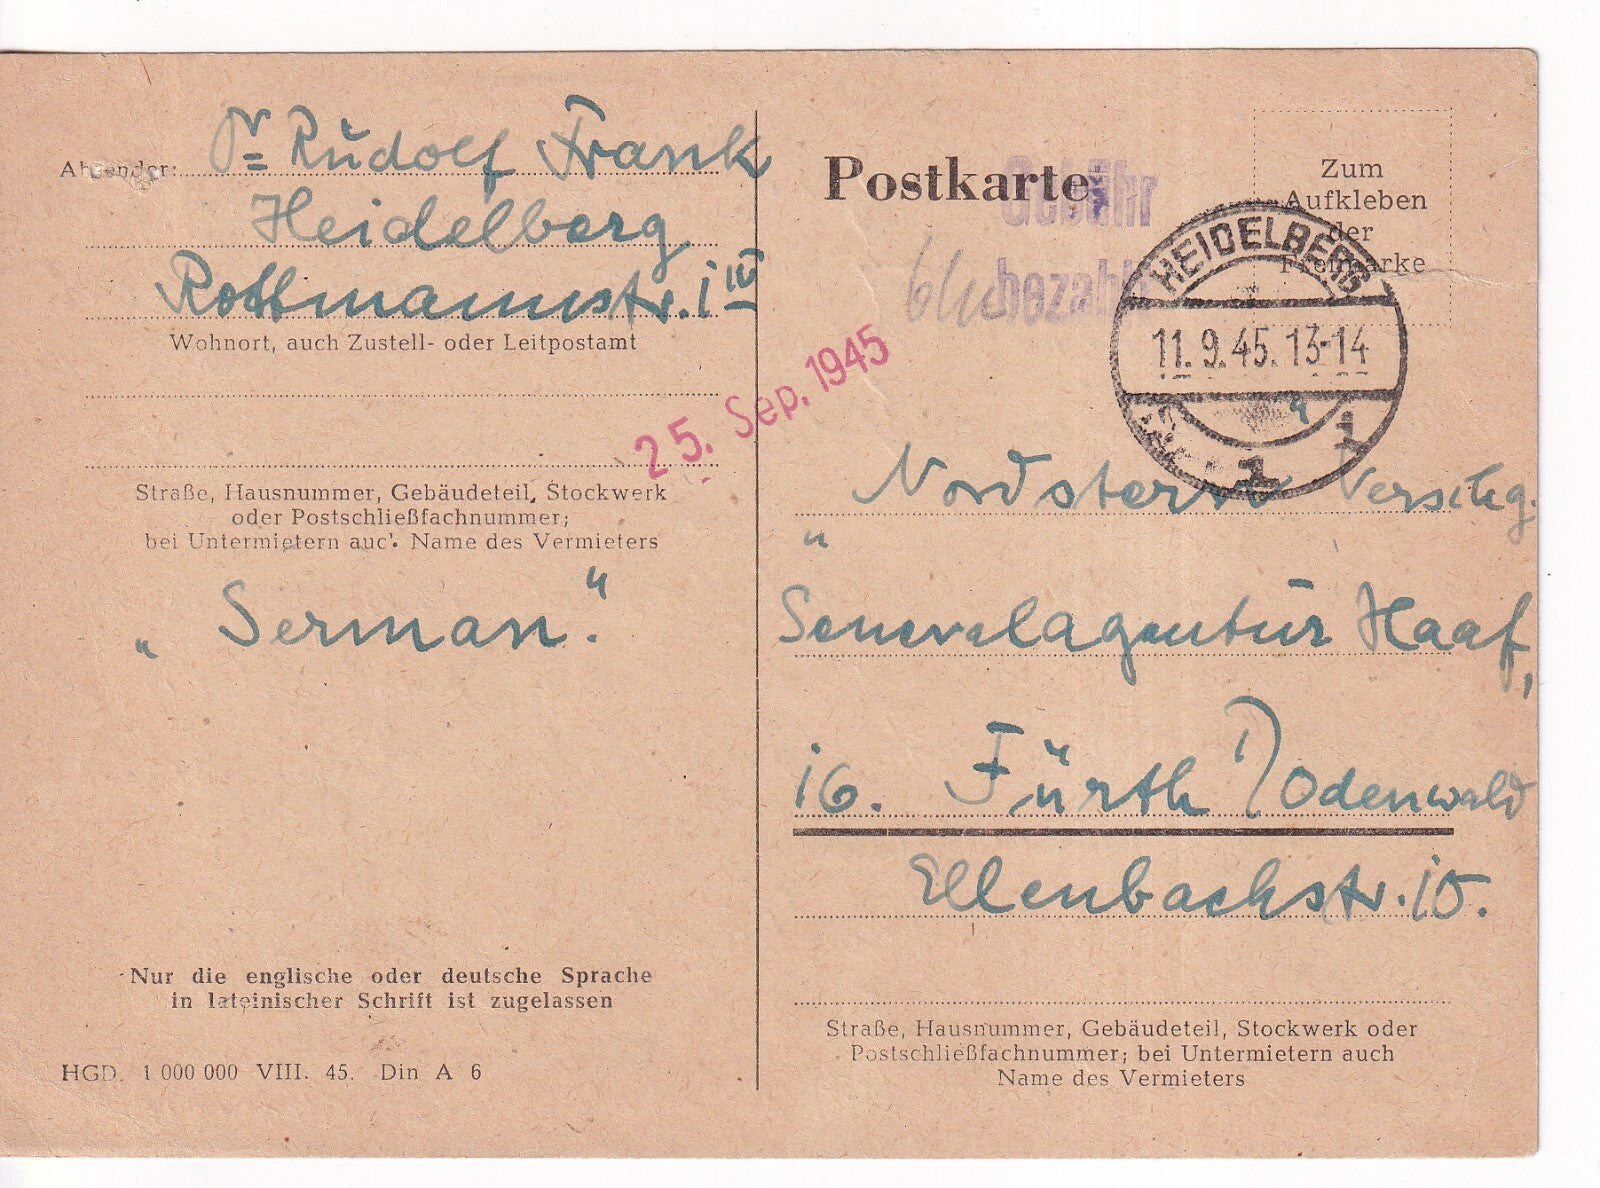 Absender: Dr Rudolf Frank
Heidelberg
Rottmannstr. 1 III
Wohnort, auch Zustell- oder Leitpostamt
Straße, Hausnummer, Gebäudeteil, Stockwerk
oder Postschließfachnummer;
bei Untermietern auch Name des Vermieters
„German."
Nur die englische oder deutsche Sprache
in lateinischer Schrift ist zugelassen
HGD. 1 000 000 VIII. 45. Din A 6
25. Sep. 1945
Postkarte
Gebühr
bezahlt
Zum
Aufkleben
der
Freimarke
HEIDELBERG
11.9.45.13-14
1 1
„Nordstern" Verschg.
Generalagentur Haaf,
16. Fürth / Odenwald
Ellenbachstr. 10.
Straße, Hausnummer, Gebäudeteil, Stockwerk oder
Postschließfachnummer; bei Untermietern auch
Name des Vermieters